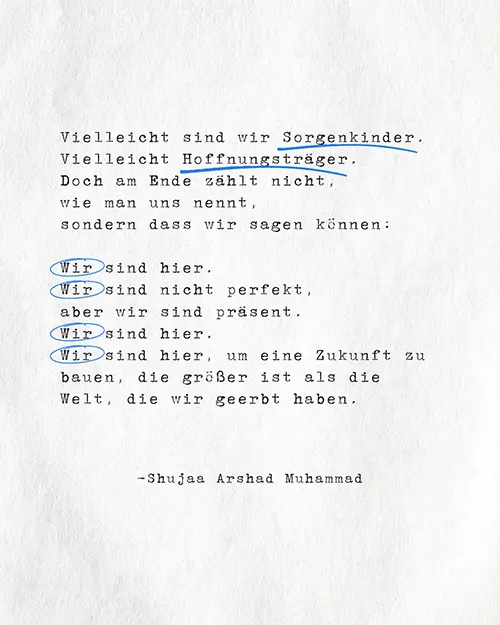 Vielleicht sind wir Sorgenkinder.
Vielleicht Hoffnungsträger.
Doch am Ende zählt nicht,
wie man uns nennt,
sondern dass wir sagen können:
Wir sind hier.
Wir sind nicht perfekt,
aber wir sind präsent.
Wir sind hier.
Wir sind hier, um eine Zukunft zu
bauen, die größer ist als die
Welt, die wir geerbt haben.
-Shujaa Arshad Muhammad